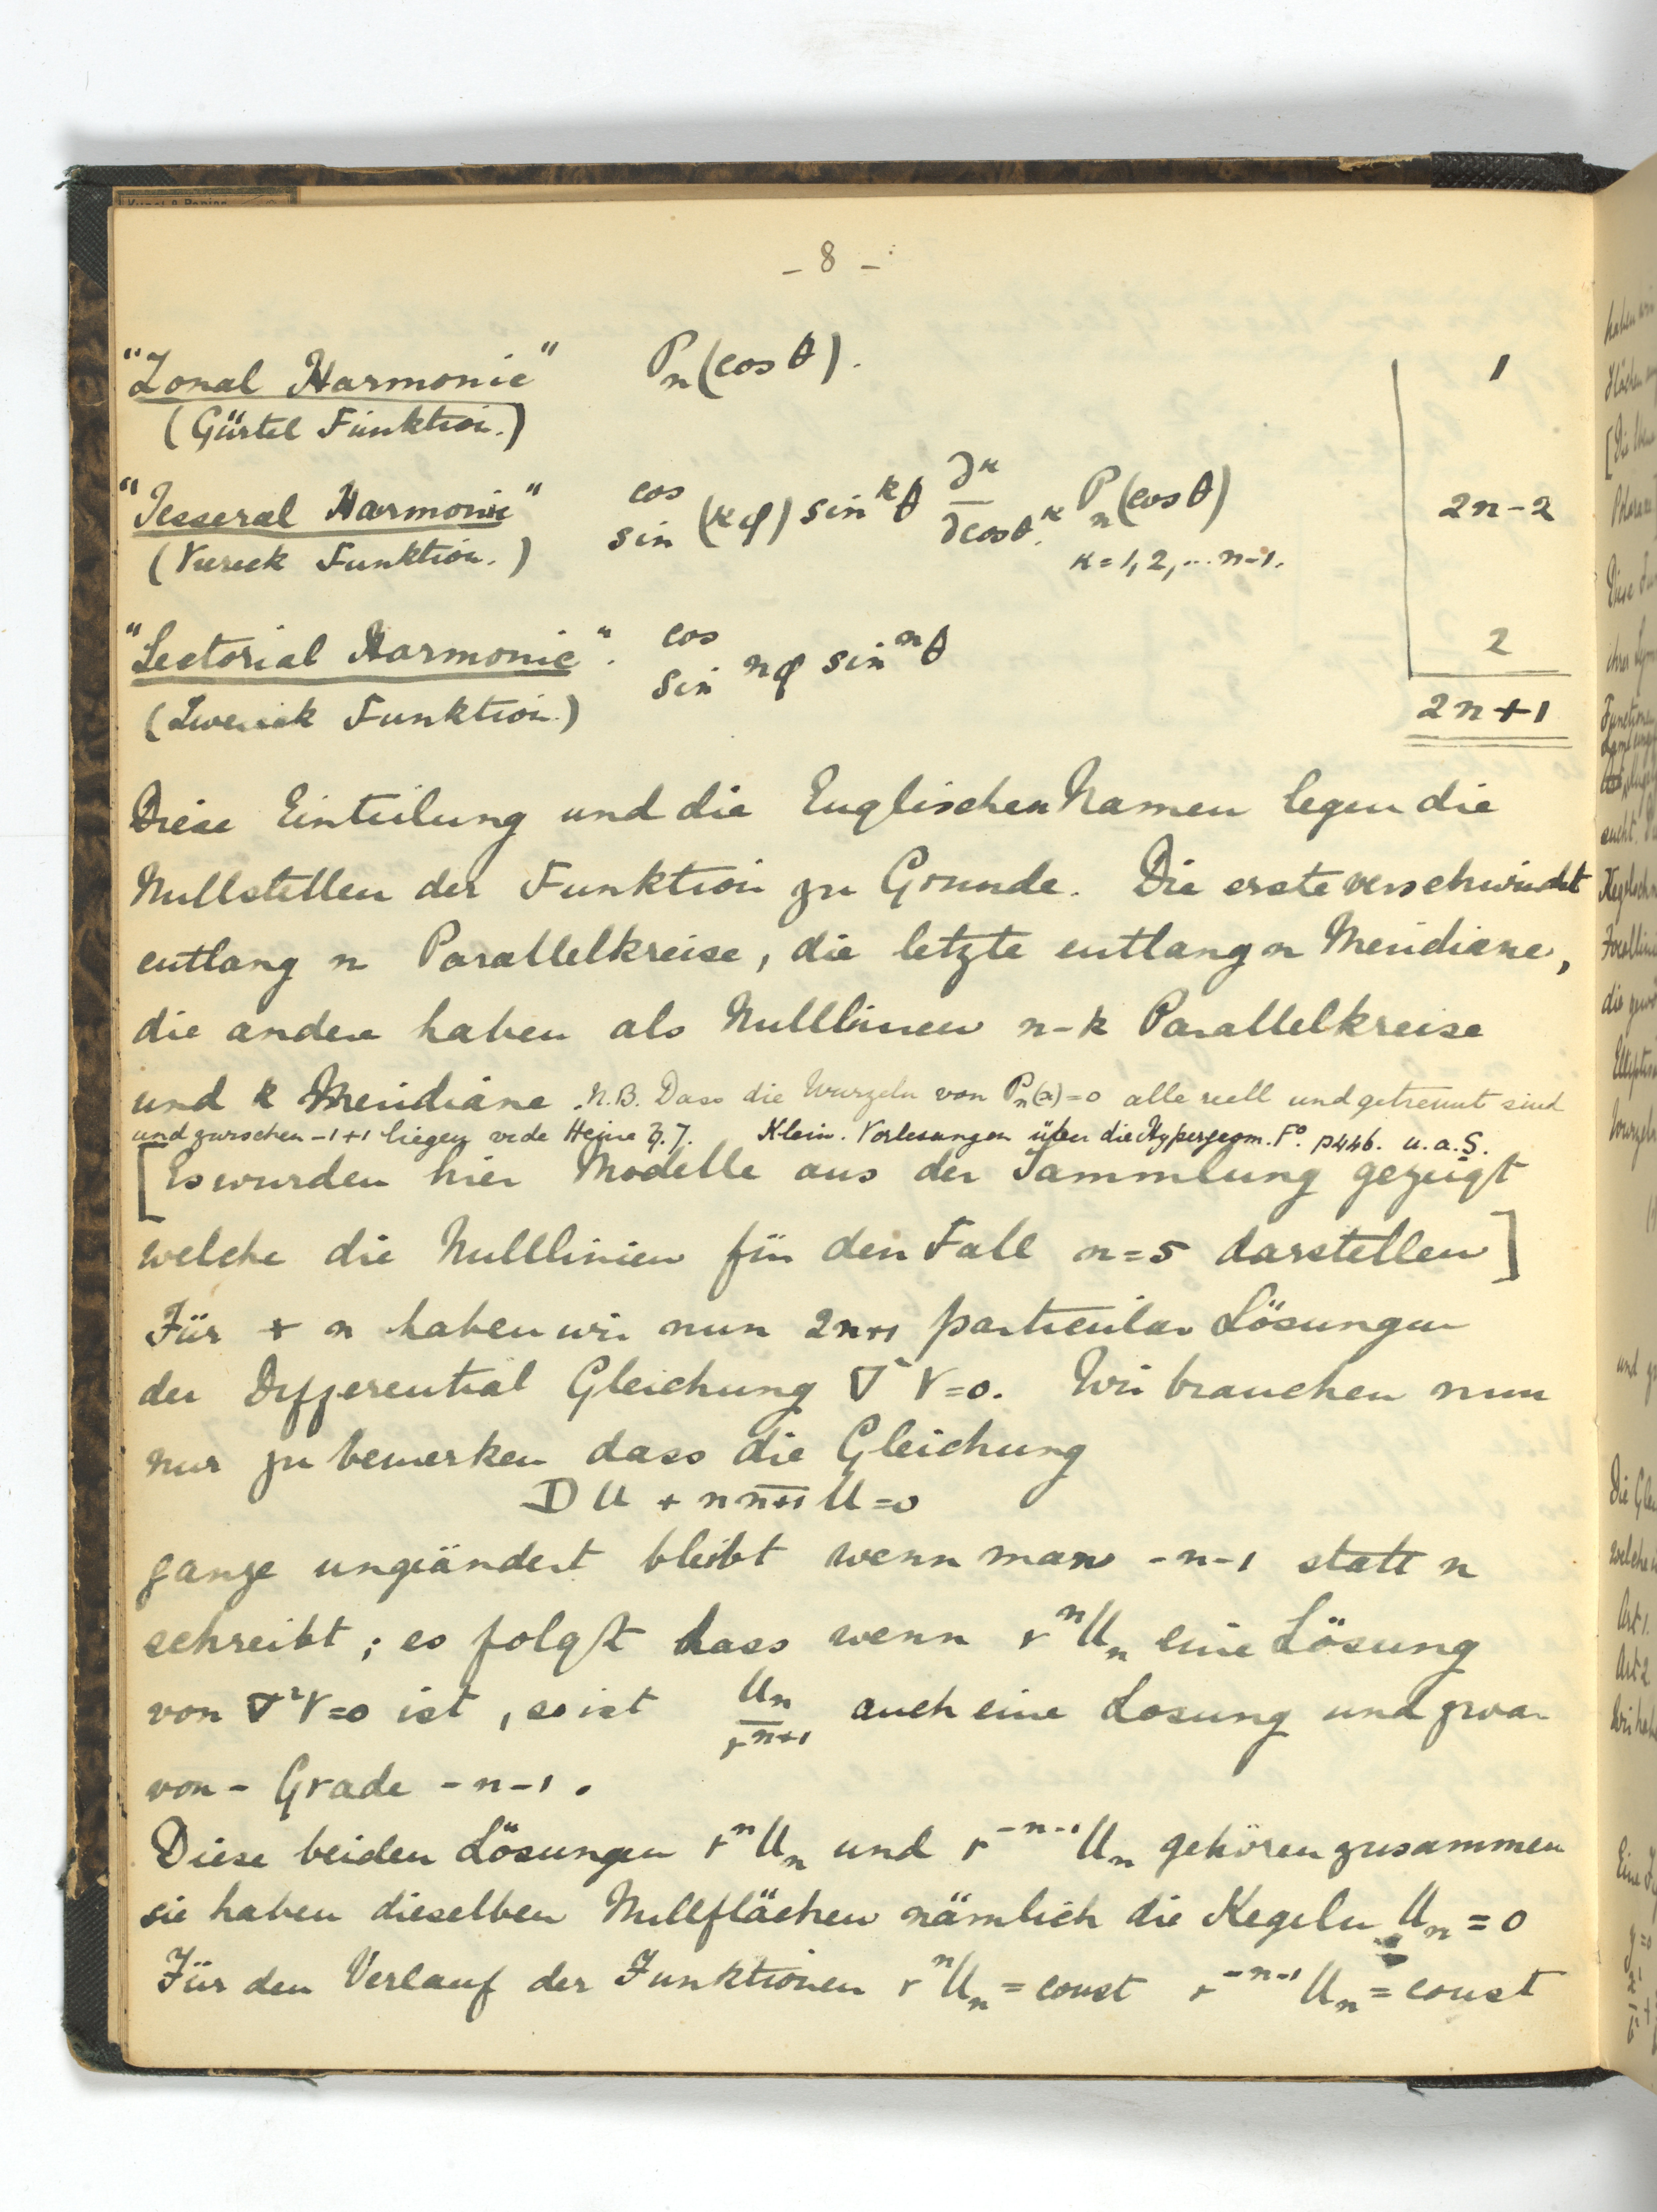 - 8 -
"Zonal Harmonic" P_n(cos θ). 1
(Gürtel Funktion.)
"Tesseral Harmonic" cos sin (κφ) sin^k θ ∂^κ/∂cosθ^κ P_n(cos θ) 2n-2
(Viereck Funktion.) κ=1,2,...n-1.
"Sectorial Harmonic". cos sin nφ sin^n θ 2
(Zweieck Funktion.) 2n+1
Diese Einteilung und die Englischen Namen legen die
Nullstellen der Funktion zu Grunde. Die erste verschwindet
entlang n Parallelkreise, die letzte entlang n Meridiane,
die andere haben als Nulllinien n-k Parallelkreise
und k Meridiane. N.B. Dass die Wurzeln von P_n(x)=0 alle reell und getrennt sind
und zwischen -1+1 liegen vide Heine Klein. Vorlesungen über die Hypergeom. F^o. p446. u.a.S.
[Es wurden hier Modelle aus der Sammlung gezeigt
welche die Nulllinien für den Fall n=5 darstellen]
Für + n haben wir nun 2n+1 particular Lösungen
der Differential Gleichung ∇²V=0. Wir brauchen nun
nur zu bemerken dass die Gleichung
DU + n n+1 U=0
ganze ungeändert bleibt wenn man -n-1 statt n
schreibt; es folgt dass wenn r^n U_n eine Lösung
von ∇²V=0 ist, so ist U_n/r^{n+1} auch eine Losung und zwar
von - Grade -n-1.
Diese beiden Lösungen r^n U_n und r^{-n-1} U_n gehören zusammen
sie haben dieselben Nullflächen nämlich die Kegeln U_n = 0
Für den Verlauf der Funktionen r^n U_n = const r^{-n-1} U_n = const